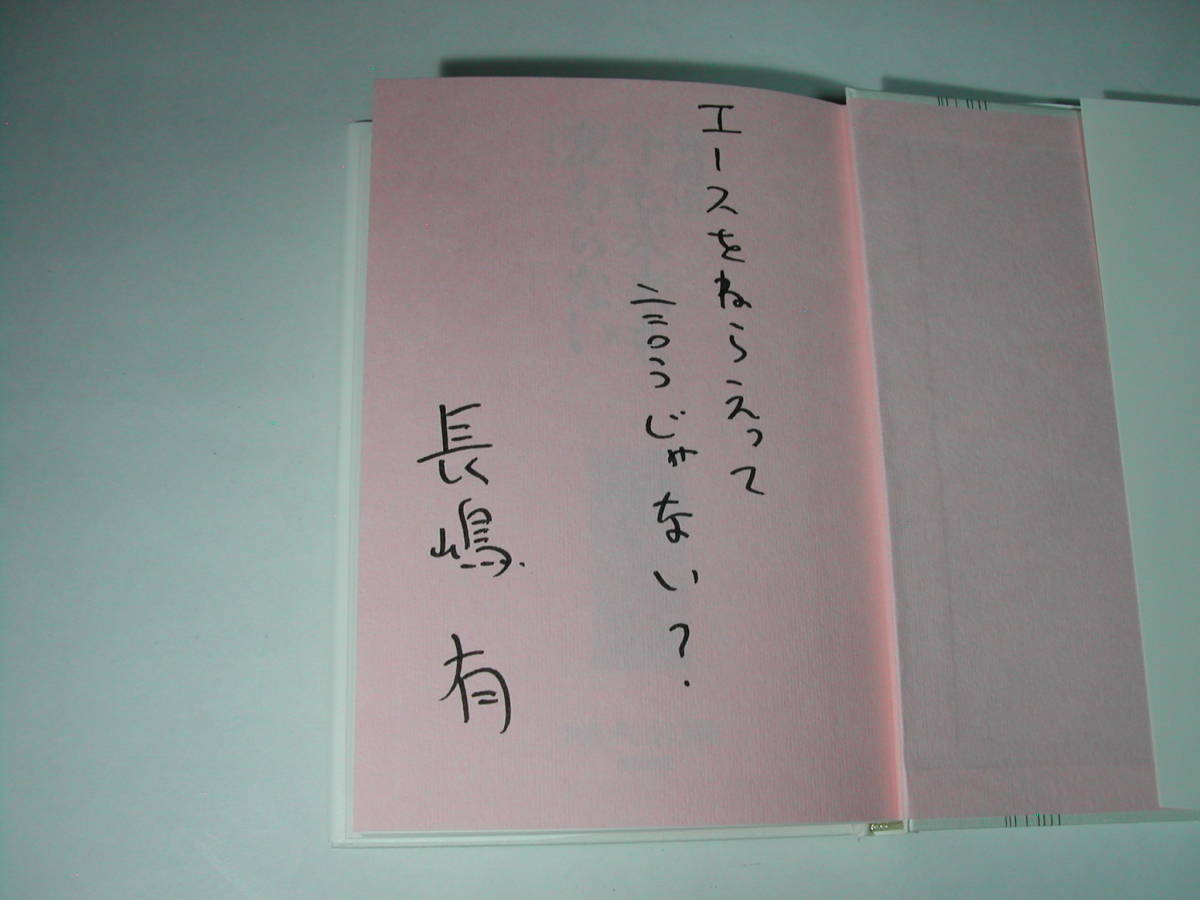 エースをねらえって
言うじゃない?
長嶋有